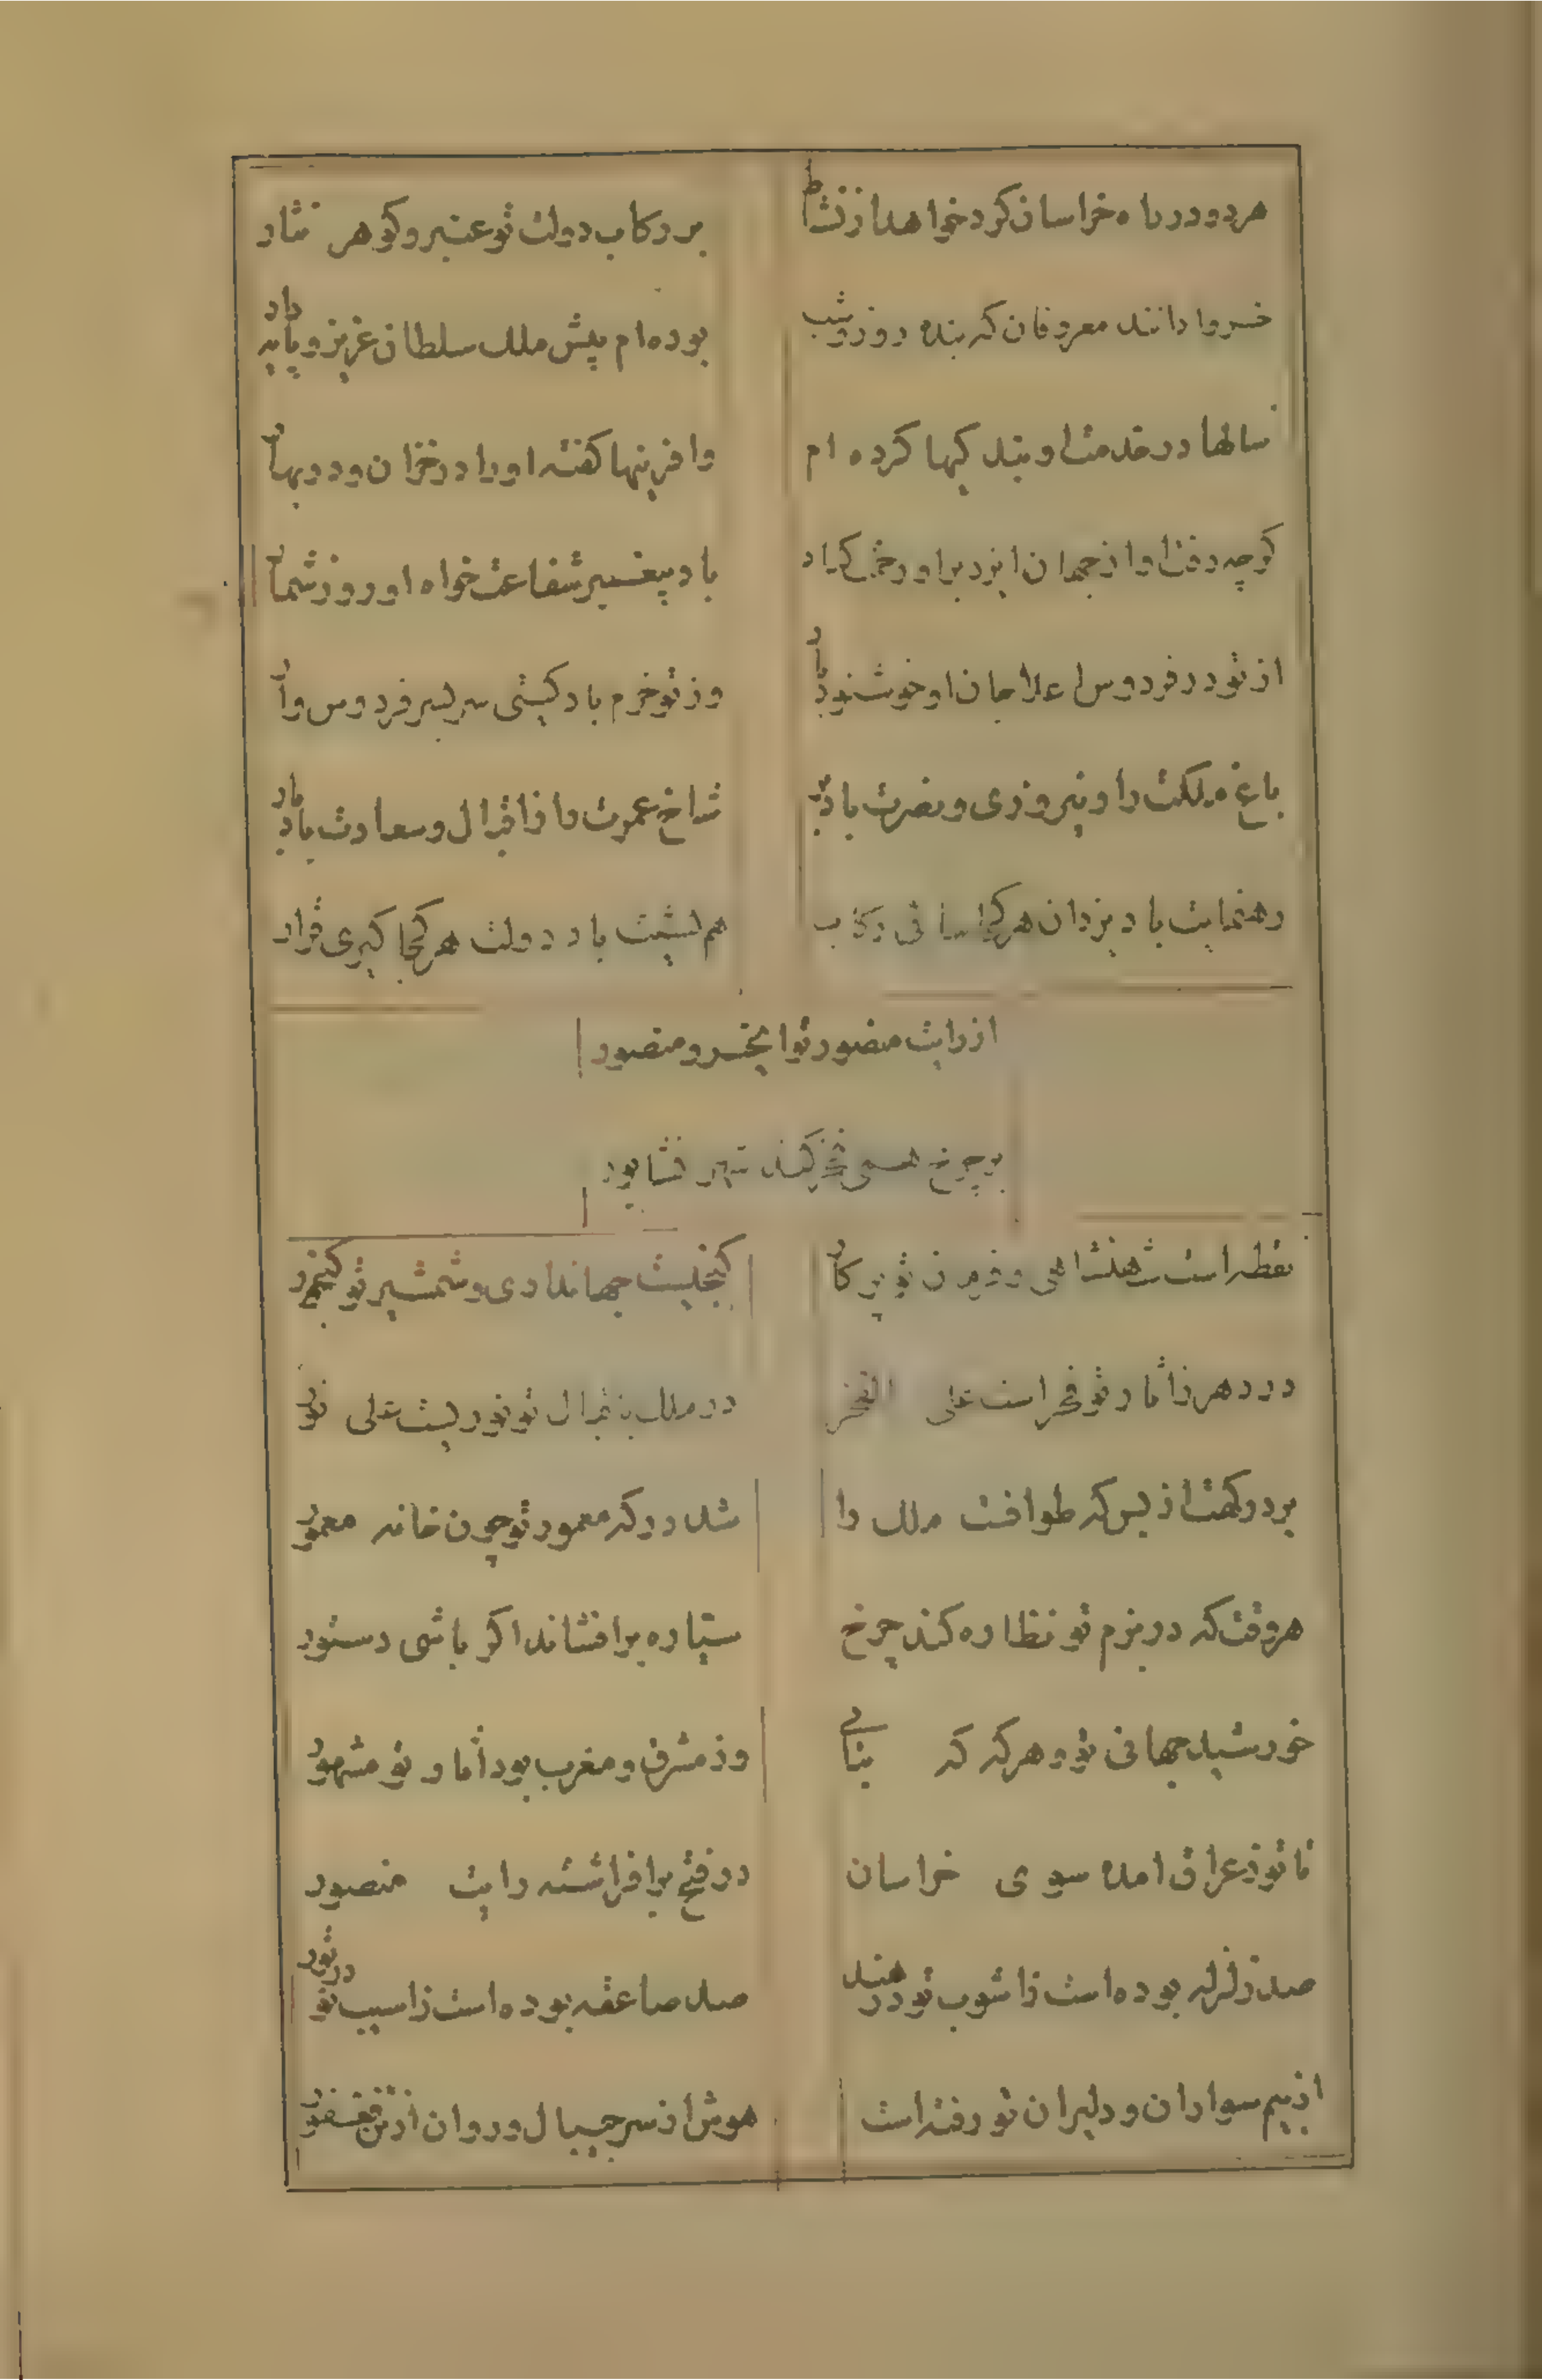 هر دو در راه خراسان کرد خواهد از نشاط
بر رکاب دولت تو عنبر و کوهر نثار
خسروا دانند معروفان که بنده روز و شب
بوده‌ام پیش ملک سلطان عزیز و پایه دار
سالها در خدمت او بندکیها کرده ام
وافرینها کفته او را در خزان و در بهار
کر چه رفت او از جهان ایزد براو رحمت کناد
باد پیغمبر شفاعت خواه او روز شمار
از تو در فردوس اعلا جان او خوشنود باد
وز تو خرم باد کیتی سر بسر فردوس وار
باغ ملکت را و پیروزی و نصرت باد بر
شاخ عمرت را ز اقبال و سعادت باد بار
رهنمایت باد یزدان هر کجا رانی رکاب
هم نشینت باد دولت هر کجا کیری قرار
از رایت منصور تو ای خسرو منصور
بر چرخ همی فخر کند شهر نشابور
نقطه است شهنشاهی و فرمان تو پرکار
کنجیست جهانداری و شمشیر تو کنجور
در دهر ز اثار تو فخر است علی الفخر
در ملک ز اقبال تو نوریست علی نور
بر درکهت از بس که طوافت ملک را
شد درکه معمور تو چون خانه معمور
هر وقت که در بزم تو نظاره کند چرخ
ستاره برافشاند اکر باشی دستور
خورشید جهانی تو و هر که که بتابی
وز مشرق و مغرب بود اثار تو مشهور
تا تو ز عراق امده سوی خراسان
در فتح برافراشته رایت منصور
صد زلزله بوده است ز اشوب تو در هند
صد صاعقه بوده است ز اسیب تو در تور
از بیم سواران و دلیران تو رفته است
هوش از سر جیپال و روان از تن فغفور